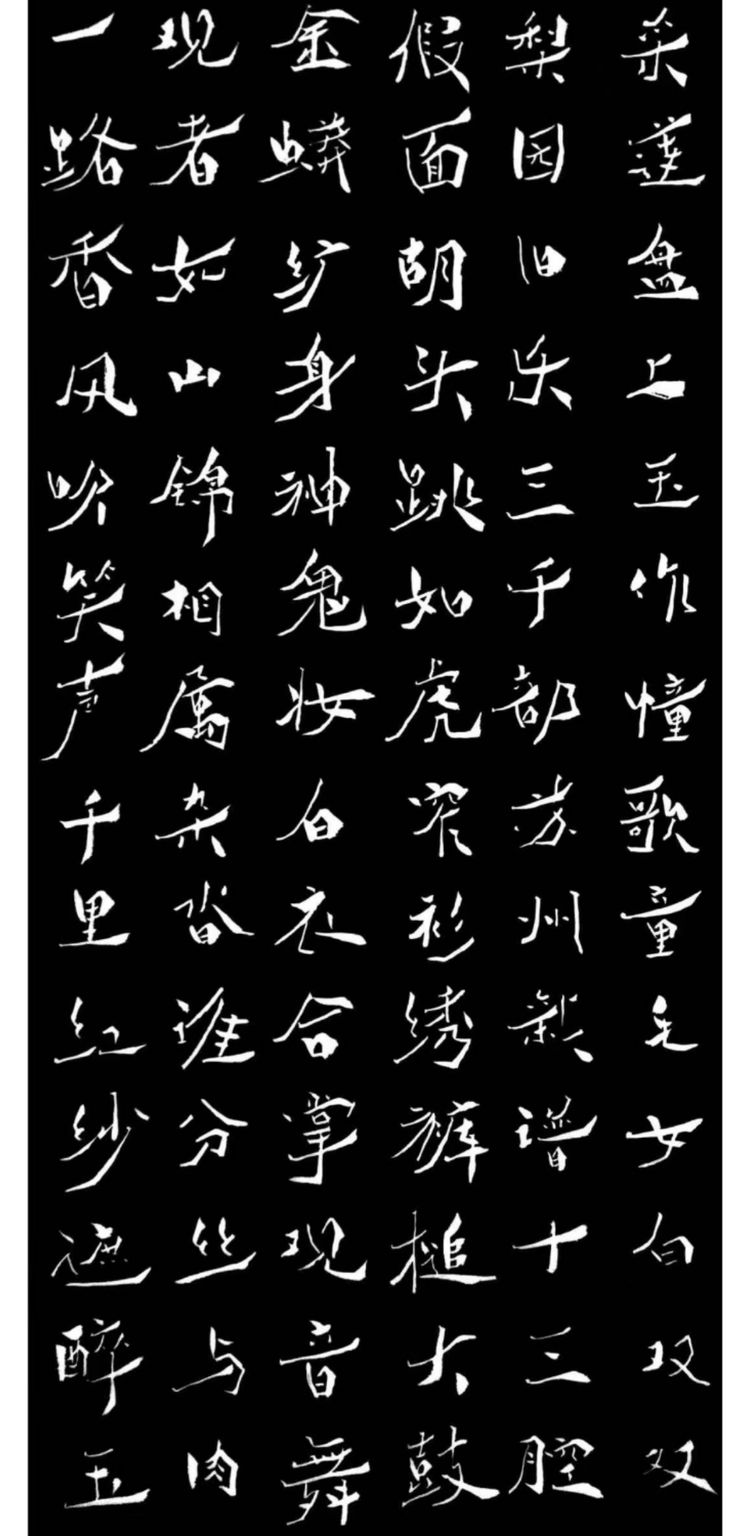 采莲盘上玉作幢歌童毛女白双双
梨园旧乐三千部苏州新谱十三腔
假面胡头跳如虎窄衫绣裤槌大鼓
金蟒纺身神鬼妆白衣合掌观音舞
观者如山锦相属杂沓谁分丝与肉
一路香风吹笑声千里红纱遮醉玉